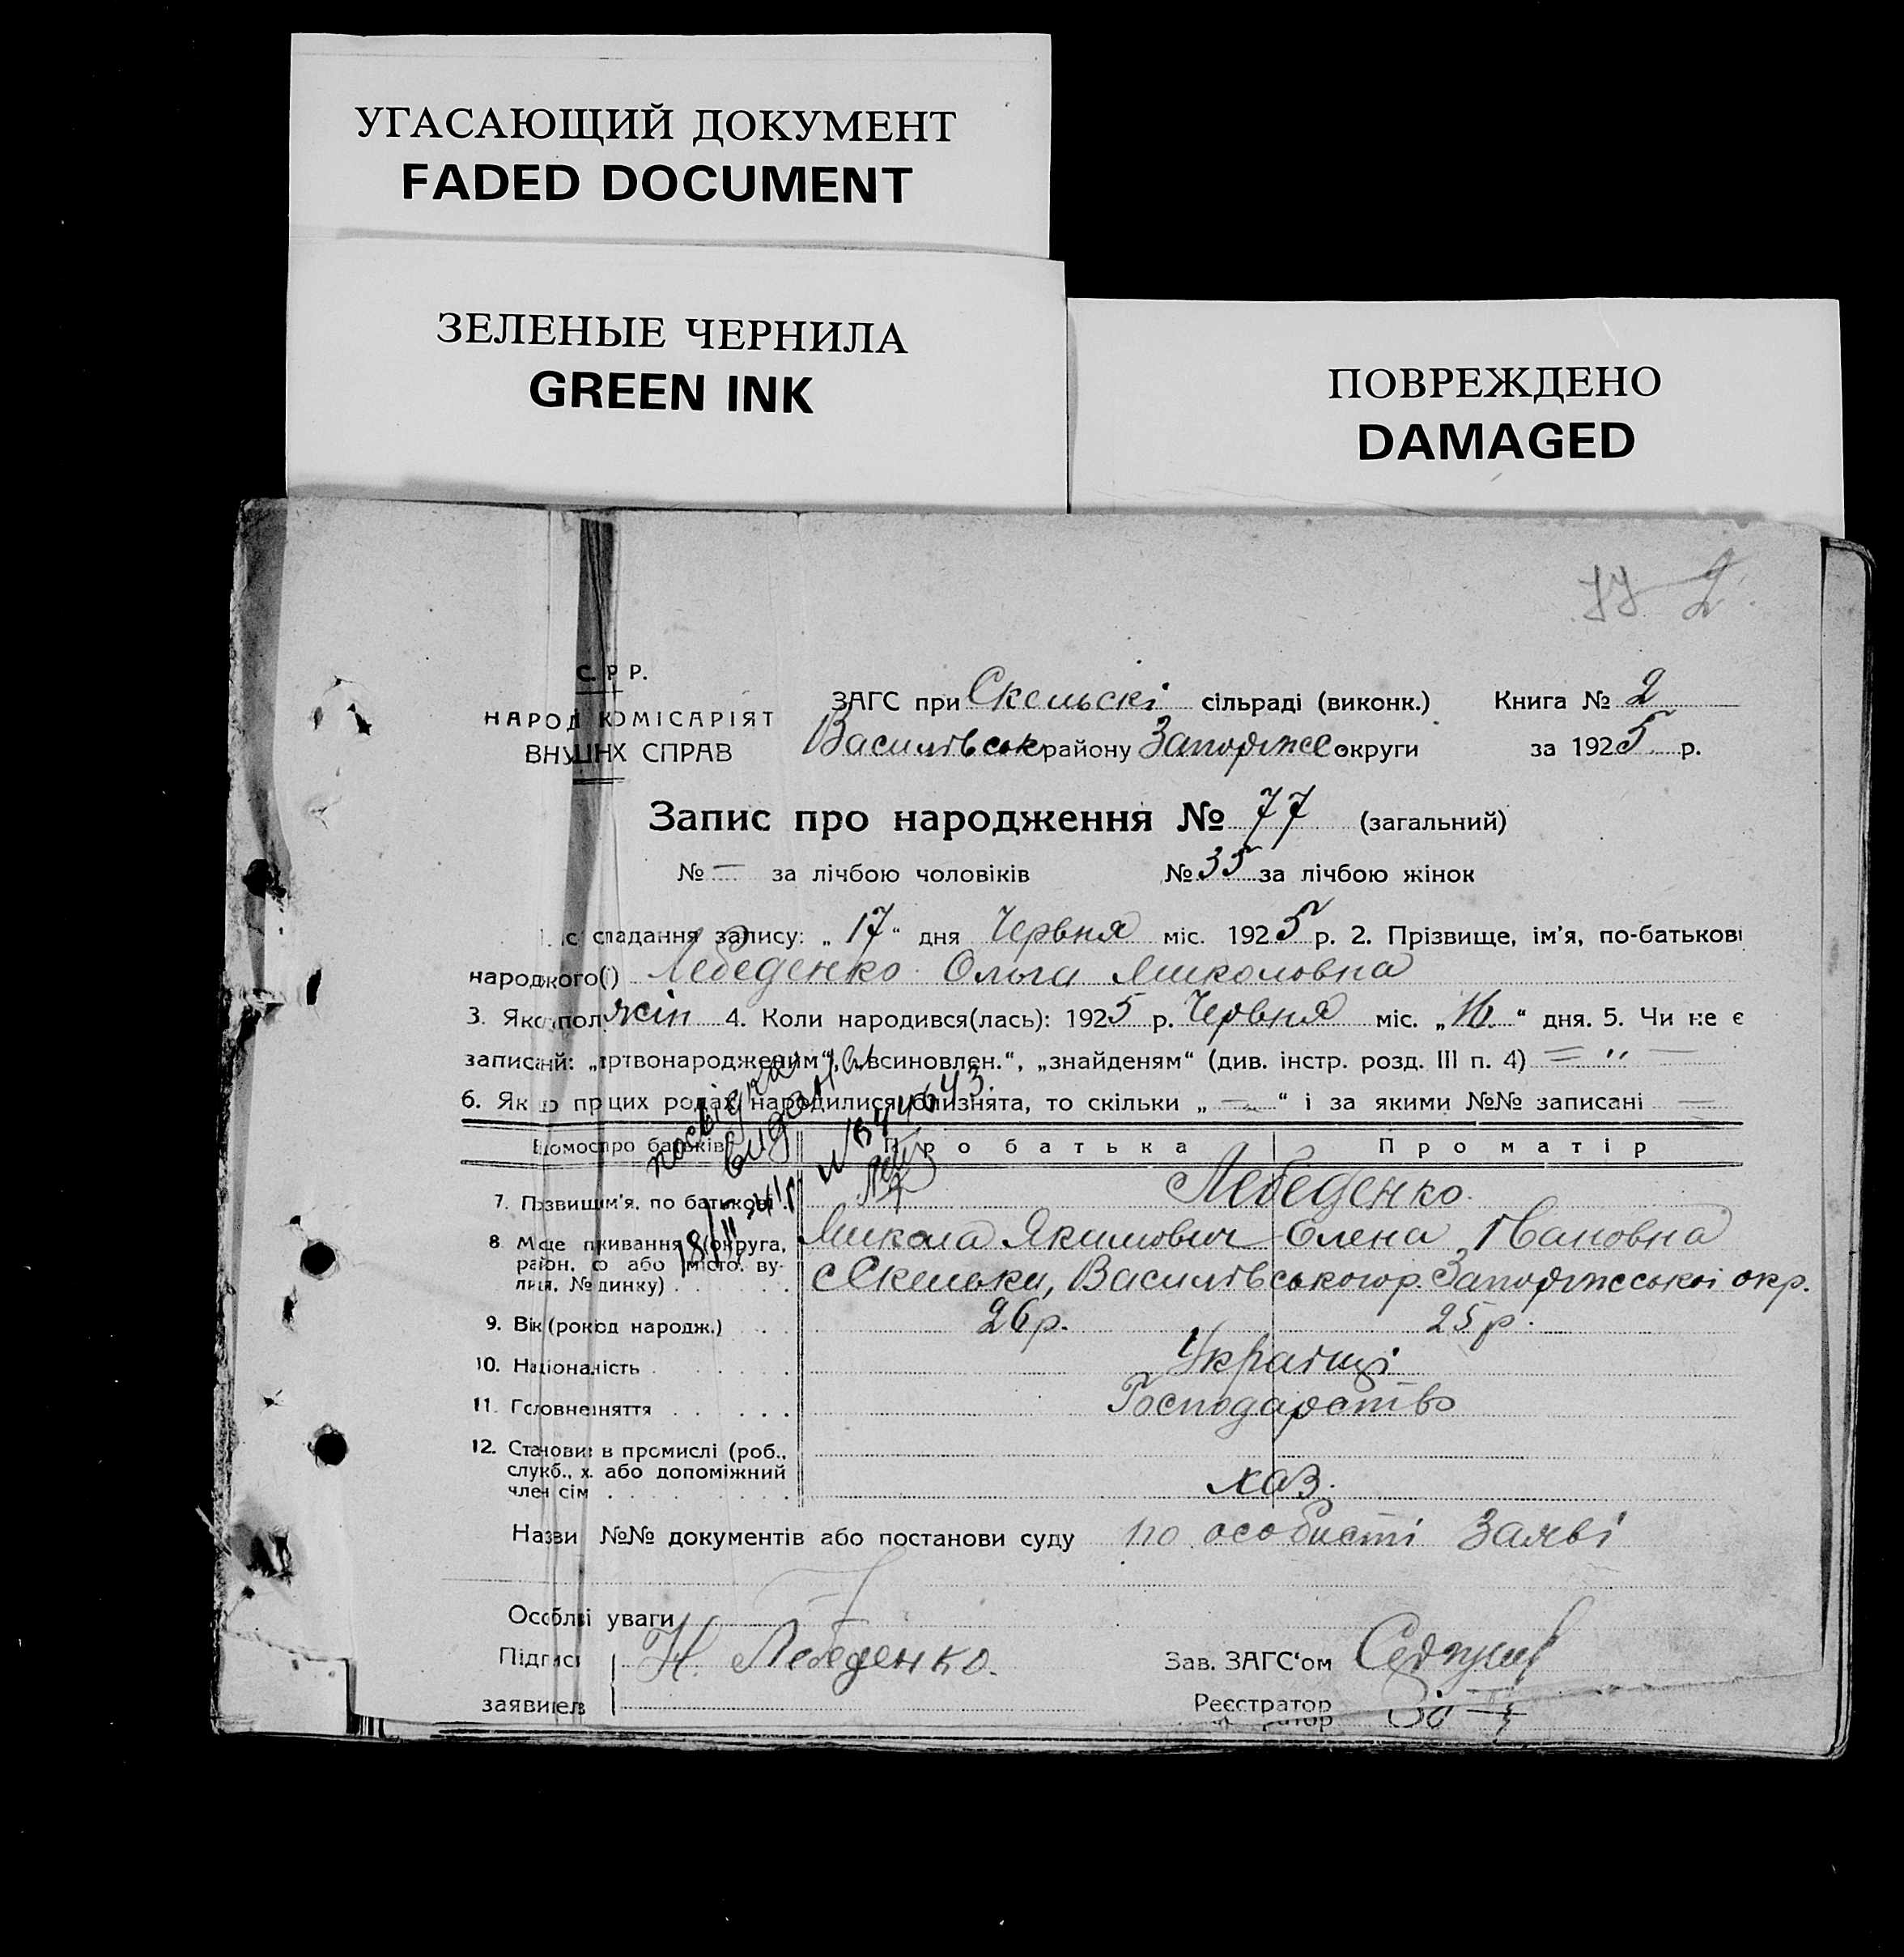 УГАСАЮЩИЙ ДОКУМЕНТ
FADED DOCUMENT
ЗЕЛЕНЫЕ ЧЕРНИЛА
GREEN INK
ПОВРЕЖДЕНО
DAMAGED
77 2
С. Р Р.
НАРОД КОМІСАРІЯТ
ВНУШНХ СПРАВ
ЗАГС при Скельскі сільраді (виконк.) Книга № 2
Василівськ району Запоріже округи за 1925 р.
Запис про народження № 77 (загальний)
№ — за лічбою чоловіків № 35 за лічбою жінок
с складання запису: „17“ дня Червня міс. 1925 р. 2. Прізвище, ім’я, по-батькові
народкого( ) Лебеденко Ольга Миколовна
3. Яко пол. жін 4. Коли народився(лась): 1925 р. Червня міс. „16.“ дня. 5. Чи не є
записаний: „ртвонародженим“, „всиновлен.“, „знайденям“ (див. інстр. розд. III п. 4) — „ —
6. Як о при цих родах народилися близнята, то скільки „—“ і за якими №№ записані —
посвідка видана
18/II-41р. № 844643.
домос про батьків Про батька Про матір
7. Прозвищ ім’я, по батькові Лебеденко
Микола Якимович Елена Івановна
8 Місце пкивання (округа, район, с або місто, вулиця, № динку) с Скельки, Василівського р. Запоріжської окр.
9. Вік (рокюд народж.) 26 р. 25 р.
10. Націоналність Українці
11. Головне няття Господарство
12. Становиз в промислі (роб.,
служб., х. або допоміжний
член сім хаз.
Назви №№ документів або постанови суду по особисті заяві
Особлві уваги
Підписі Н. Лебеденко. Зав. ЗАГС‘ом
заявиелв Реєстратор